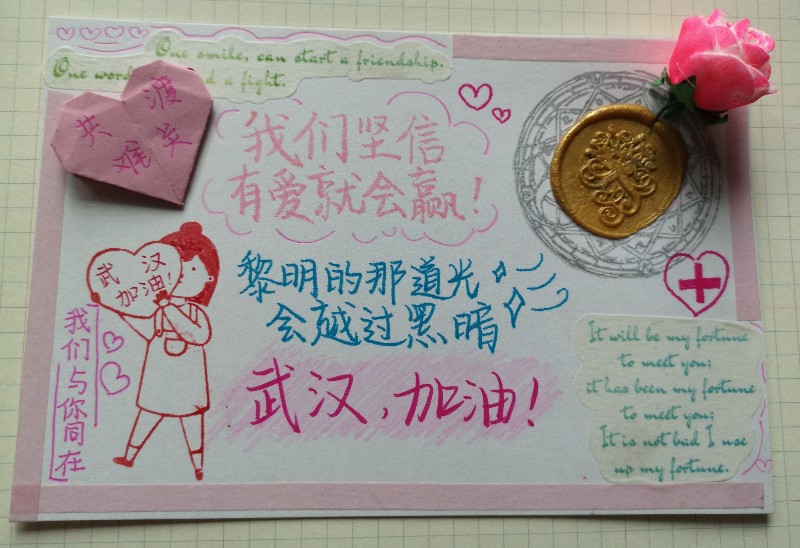 One smile, can start a friendship.
One word d a fight.
共渡
难关
我们坚信
有爱就会赢!
武汉
加油!
黎明的那道光
会越过黑暗
武汉,加油!
我们与你同在
It will be my fortune
to meet you;
it has been my fortune
to meet you;
It is not bad I use
up my fortune.